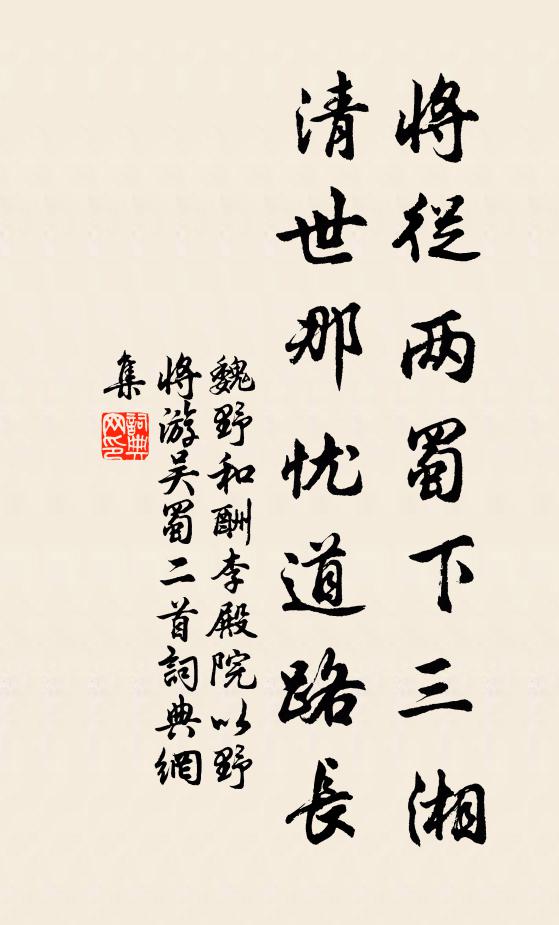 将從两蜀下三湘
清世那忧道路長
魏野和酬李殿院以野
将游吴蜀二首詞典網
集
詞典网印